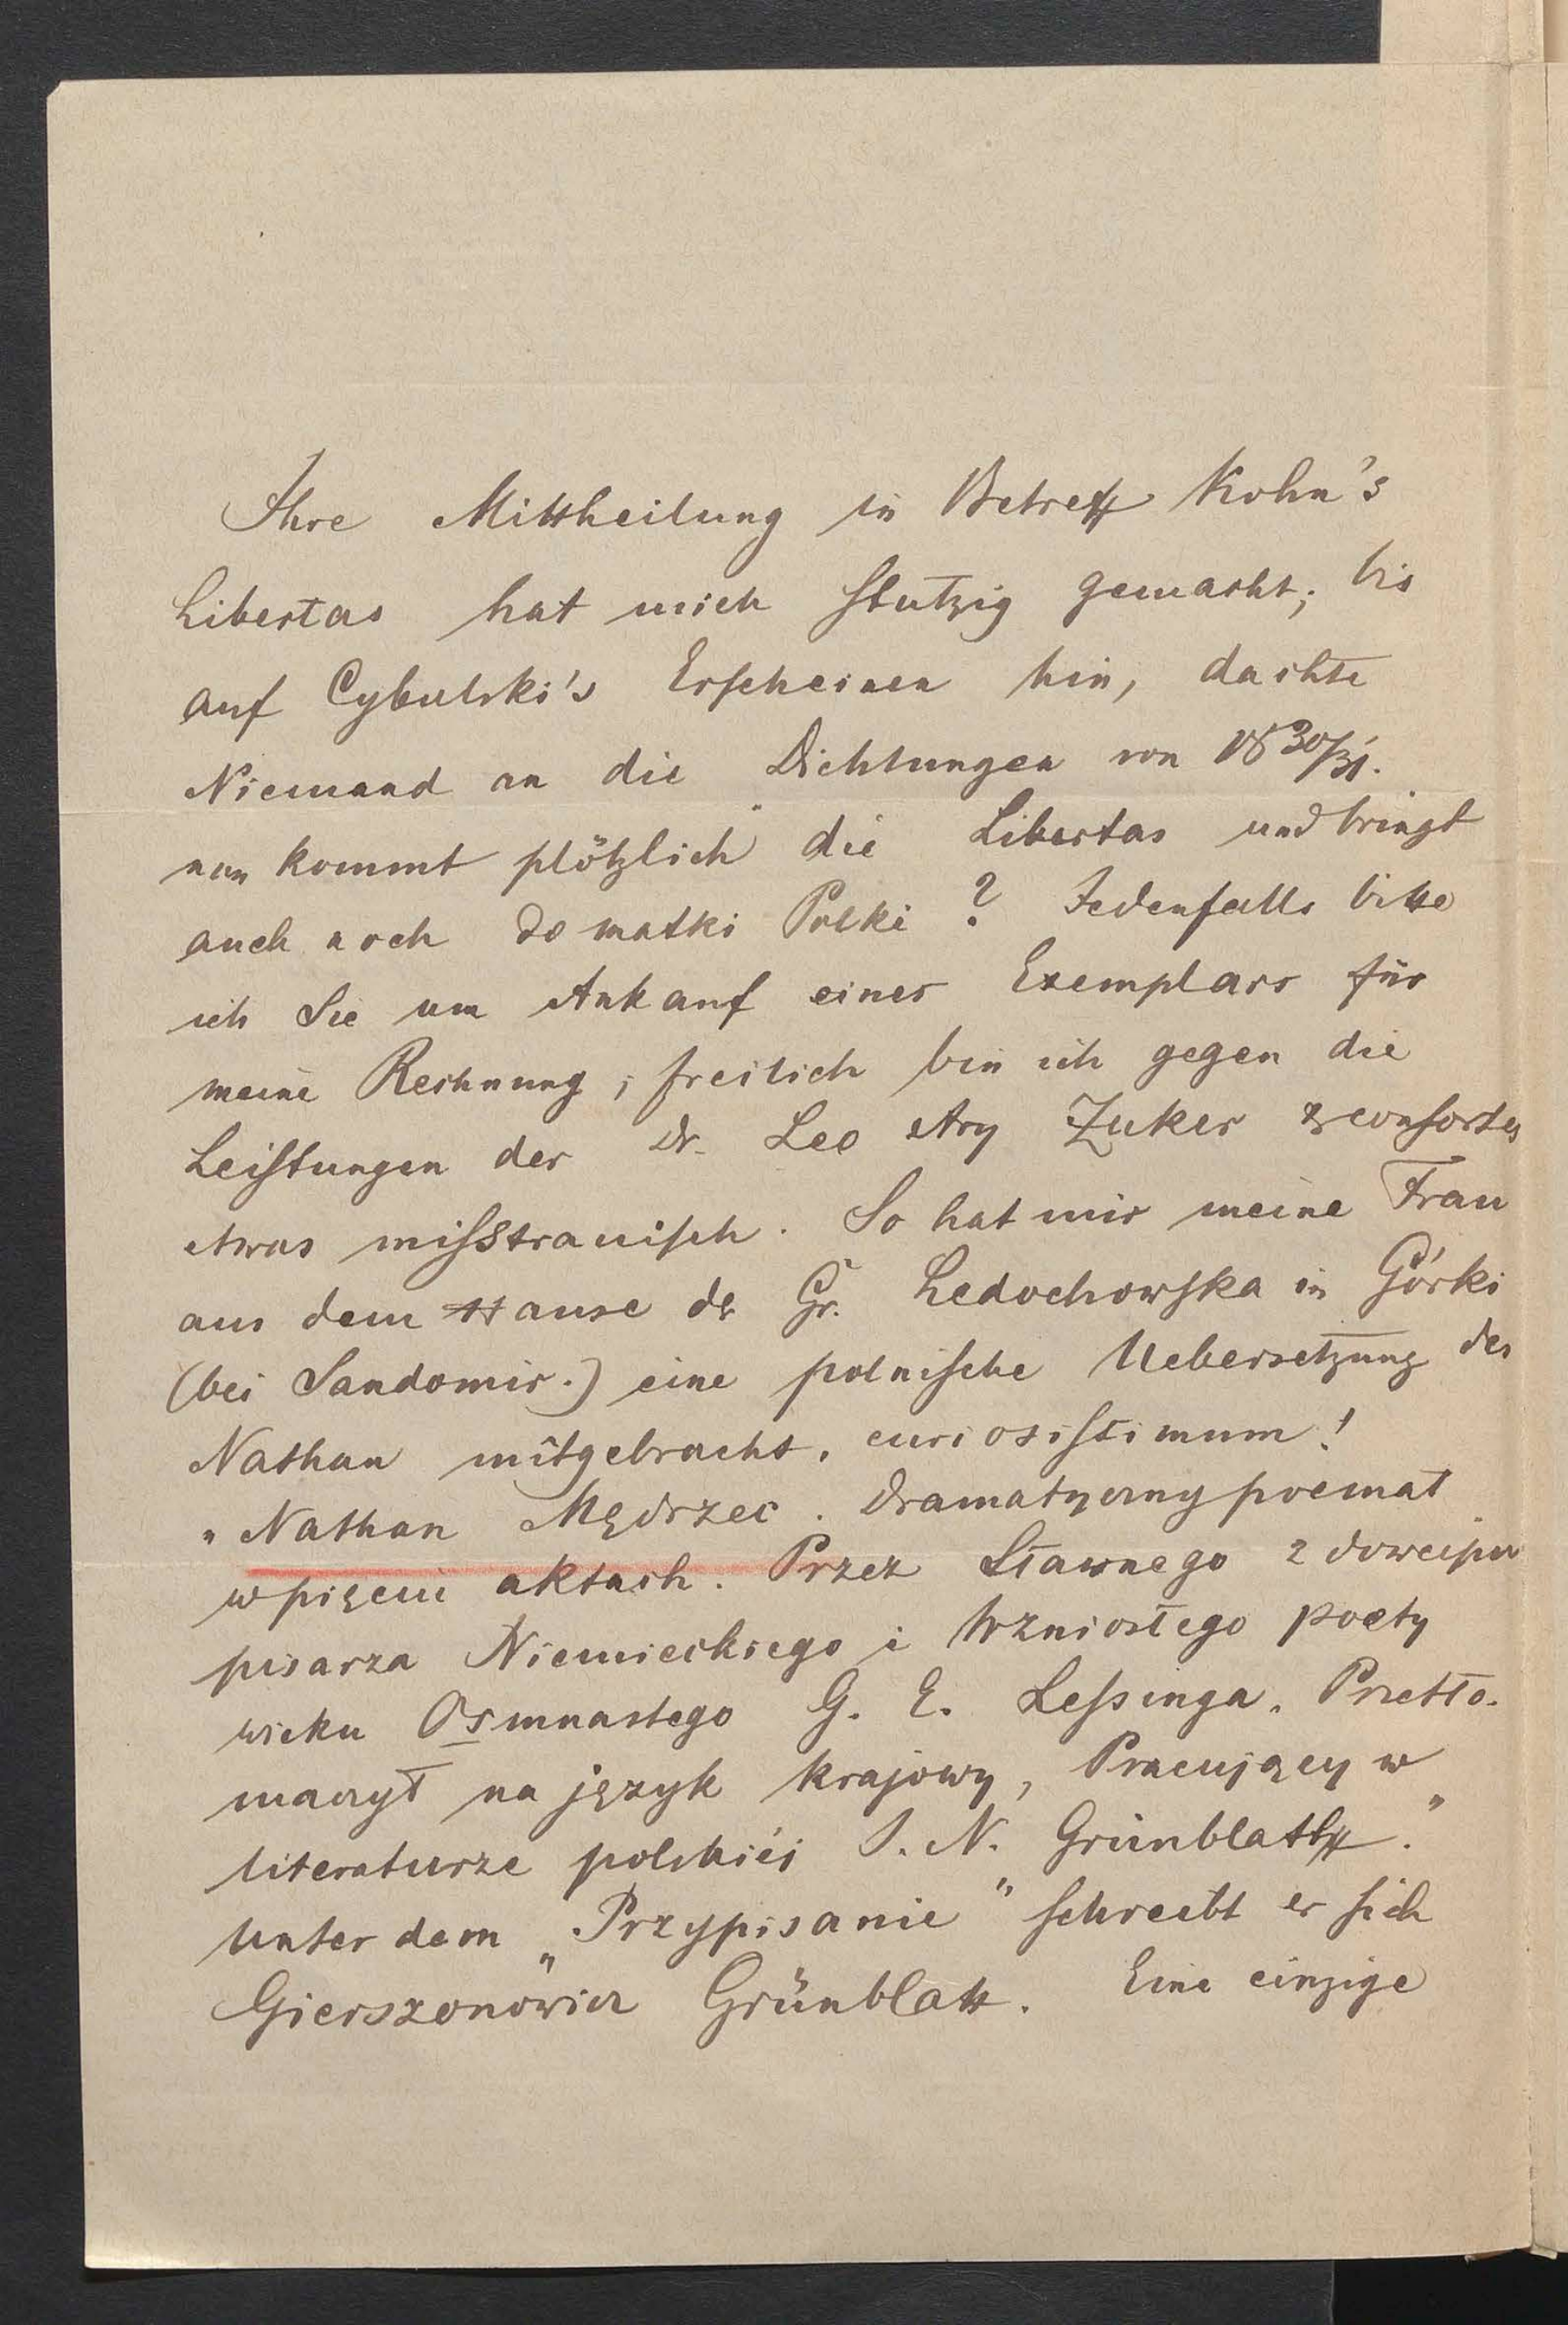 Ihre Mittheilung in Betreff Kohn's
Libertas hat mich stutzig gemacht; bis
auf Cybulski's Erscheinen hin, dachte
Niemand an die Dichtungen von 1830/31.
nun kommt plötzlich die Libertas und bringt
auch noch do matki Polki? Jedenfalls bitte
ich Sie um Ankauf eines Exemplars für
meine Rechnung; freilich bin ich gegen die
Leistungen der Dr. Leo Ary Zuker & consortes
etwas misstrauisch. So hat mir meine Frau
aus dem Hause der Gr. Ledochowska in Górki
(bei Sandomir.) eine polnische Uebersetzung des
Nathan mitgebracht, curiosissimum!
„Nathan Mędrzec. Dramatyczny poemat
w pięciu aktach. Przez Sławnego z dowcipu
pisarza Niemieckiego i Wzniosłego poety
wieku Osmnastego G. E. Lessinga. Przetło-
maczył na język krajowy, Pracujący w
literaturze polskiéj J. N. Grünblatt."
Unter dem „Przypisanie" schreibt er sich
Gierszonowicz Grünblatt. Eine einzige